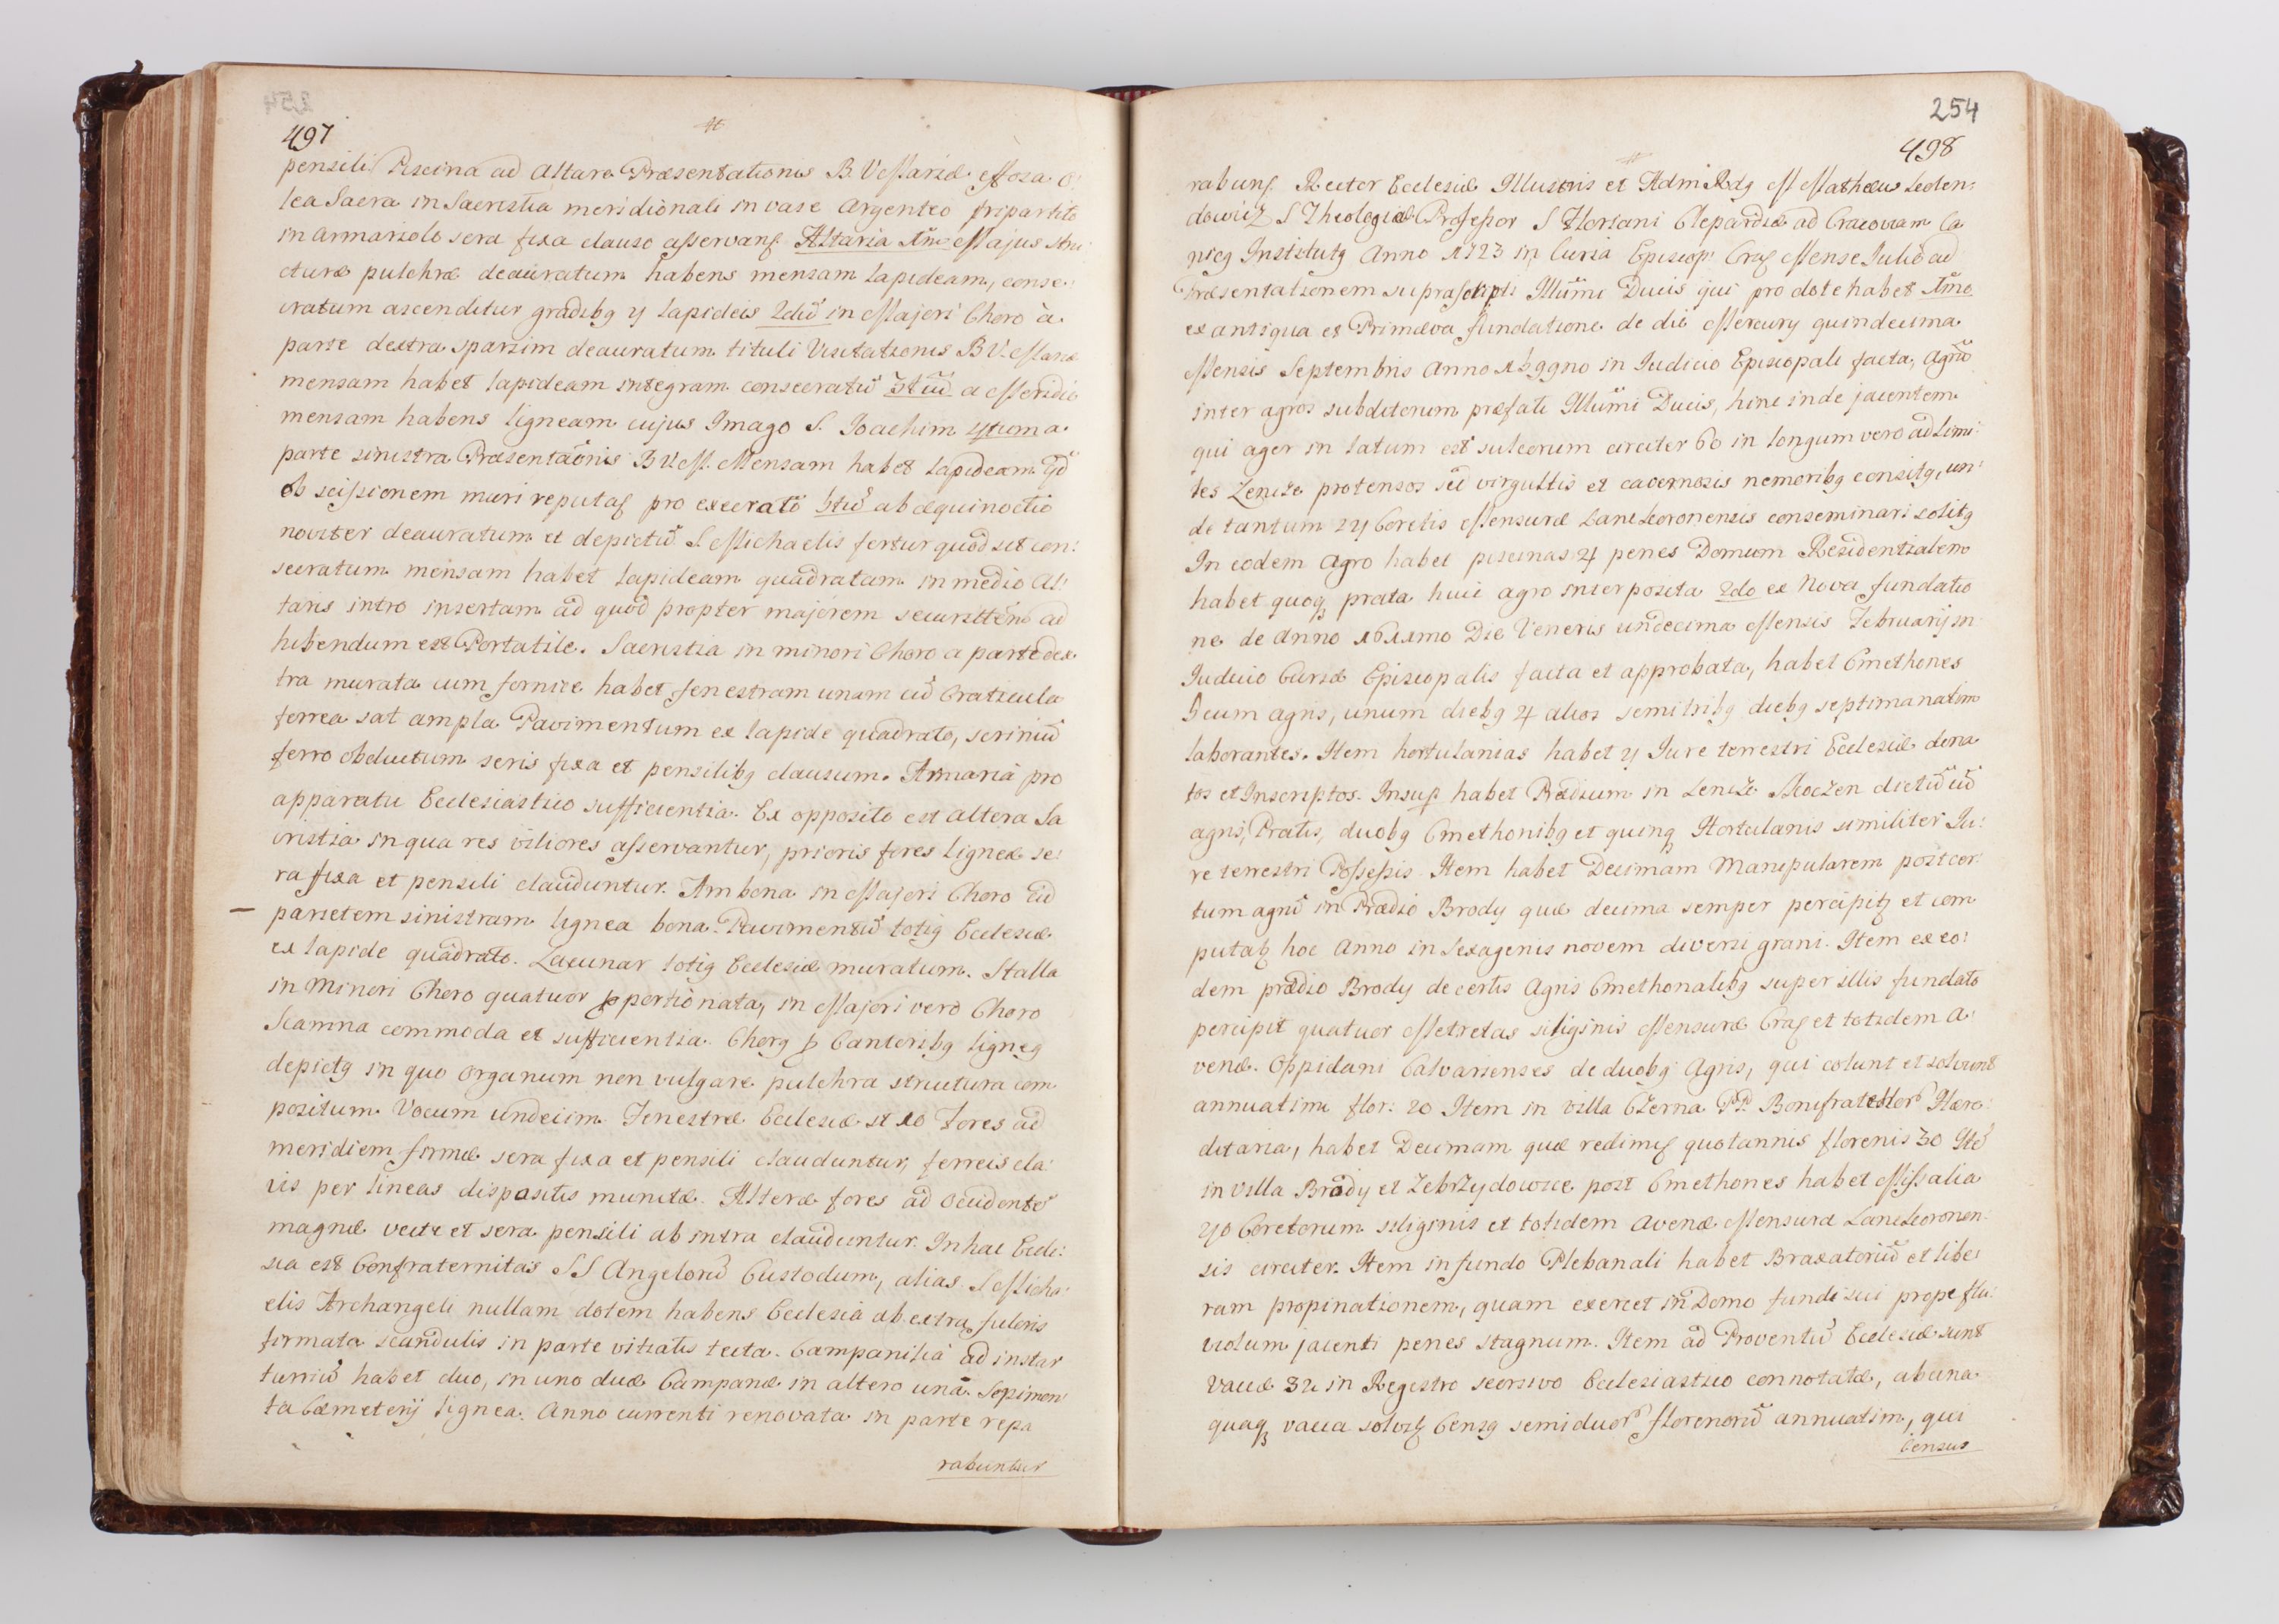 497
pensili Piscina ad Altare Præsentationis B. V Mariæ effosa O:
lea Sacra in Sacristia meridionali in vase Argenteo tripartito
in Armariolo sera fixa clauso asservanṫ. Altaria 1mū Majus Stru
cturæ pulchræ deauratum habens mensam lapideam, conse:
cratum ascenditur gradibꝰ 2 lapideis 2dū in Majori Choro à
parte dextra sparsim deauratum tituli Visitationis B V. Mariæ
mensam habet lapideam integram consecratū 3tiū a Meridie
mensam habens ligneam cujus Imago S. Joachim 4tum a
parte sinistra Præsentāōnis B V. M. Mensam habet lapideam qd
ob scissionem muri reputaṫ pro execrato 5tū ab æquinoctio
noviter deauratum et depictū S. Michaelis fertur quod sit con:
secratum mensam habet lapideam quadratam in medio Al:
taris intro insertam ad quod propter majorem securittēm ad
hibendum est Portatile. Sacristia in minori Choro a parte dex
tra murata cum fornice habet fenestram unam cū Craticula
ferrea sat ampla Pavimentum ex lapide quadrato, scriniū
ferro obductum seris fixa et pensilibꝰ clausum. Armaria pro
apparatu Ecclesiastico sufficientia. Ex opposito est altera Sa
cristia in qua res viliores asservantur, prioris fores ligneæ se:
ra fixa et pensili clauduntur. Ambona in Majori Choro ad
parietem sinistram lignea bona. Pavimentū totiꝰ Ecclesiæ
ex lapide quadrato. Lacunar totiꝰ Ecclesiæ muratum. Stalla
in Minori Choro quatuor pportionata, in Majori vero Choro
Scamna commoda et sufficientia. Chorꝰ p Cantoribꝰ ligneꝰ
depictꝰ in quo Organum non vulgare pulchra structura com
positum Vocum undecim. Fenestræ Ecclesiæ st 10 Fores ad
meridiem firmæ sera fixa et pensili clauduntur, ferreis cla:
vis per lineas dispositis munitæ. Alteræ fores ad Occidentē
magnæ vecte et sera pensili ab intra clauduntur. In hac Eccle:
sia est Confraternitas SS Angelorū Custodum, alias S Micha:
elis Archangeli nullam dotem habens Ecclesia ab extra fulcris
firmata scandulis in parte vitiatis tecta. Campanilia ad instar
turriū habet duo, in uno duæ Campanæ in altero una. Sepimen:
ta Cæmeterij lignea. Anno currenti renovata in parte repa
rabuntur
254
498
rabunṫ. Rector Ecclesiæ Illustris et AdmRdꝰ M Mathæus Leoten:
dowicz S Theologiæ Professor S Floriani Clepardiæ ad Cracoviam Ca
nicꝰ Institutꝰ Anno 1723 in Curia Episcop: Craċ Mense Julio ad
Præsentationem suprascripti Illūmi Ducis qui pro dote habet 1mo
ex antiqua et Primæva fundatione de die Mercury quindecima
Mensis Septembris Anno 1599no in Iudicio Episcopali facta, Agrū
inter agros subditorum præfati Illūmi Ducis, hinc inde jacentem
qui ager in latum est sulcorum circiter 60 in longum vero ad Limi:
tes Lencze protensos sed virgultis et cavernosis nemoribꝰ consitꝰ, un:
de tantum 24 Coretis Mensuræ Lanscoronensis conseminari solitꝰ
In eodem Agro habet piscinas 4 penes Domum Residentialem
habet quoq prata huic agro interposita 2do ex Nova fundatio
ne de Anno 1611mo Die Veneris undecima Mensis Februarij in
Iudicio Curiæ Episcopalis facta et approbata, habet Cmethones
5 cum agris, unum diebꝰ 4 alios semitribꝰ diebꝰ septimanatim
laborantes. Item hortulanias habet 4 Iure terrestri Ecclesiæ dona
tos et Inscriptos. Insup habet Prædium in Lencze Moczen dictū cū
agris, Pratis, duobꝰ Cmethonibꝰ et quinq Hortulanis similiter Iu:
re terrestri Possessis Item habet Decimam Manipularem post cer:
tum agrū in Prædio Brody quæ decima semper percipitꝫ et com
putatꝫ hoc Anno in Sexagenis novem diversi grani. Item ex eo:
dem prædio Brody de certis Agris Cmethonalibꝰ super illis fundato
percipit quatuor Metretas siliginis Mensuræ Craċ et totidem A:
venæ. Oppidani Calvarienses de duobꝰ Agris, qui colunt et solvunt
annuatim flor: 20 Item in villa Czerna PP. Bonifratellor̃ Hære:
ditaria, habet Decimam quæ redimiṫ quotannis florenis 30 Itē
in villa Brody et Zebrzydowice post Cmethones habet Missalia
40 Coretorum siliginis et totidem Avenæ Mensuræ Lanscoronen:
sis circiter. Item in fundo Plebanali habet Braxatoriū et libe:
ram propinationem, quam exercet in Domo fundi sui prope flu:
violum jacenti penes stagnum. Item ad Proventū Ecclesiæ sunt
Vaccæ 32 in Regestro seorsivo Ecclesiastico connotatæ, ab una
quaq vacca solvitꝫ Censꝰ semiduor̃ florenorū annuatim, qui
Census